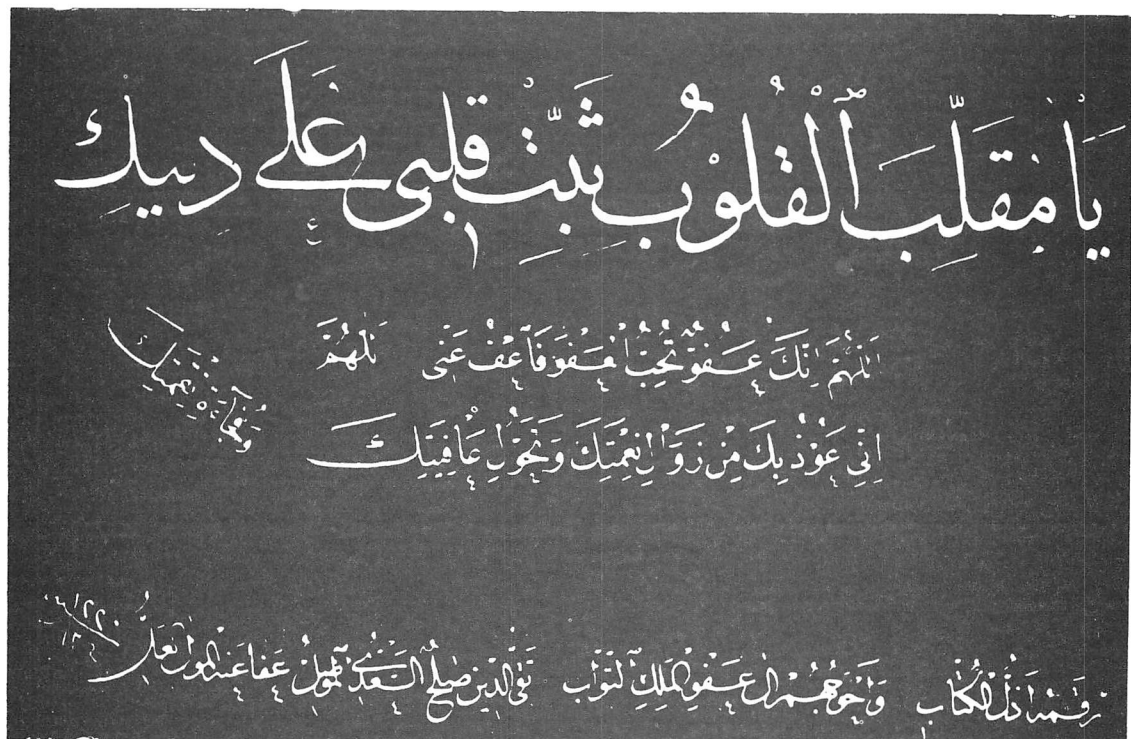 يَا مُقَلِّبَ ٱلْقُلُوْبِ ثَبِّتْ قَلْبِى عَلَى دِينِكَ
اَللّٰهُمَّ اِنَّكَ عَفُوٌّ تُحِبُّ الْعَفْوَ فَاعْفُ عَنِّى اَللّٰهُمَّ
اِنِّى اَعُوْذُ بِكَ مِنْ زَوَالِ نِعْمَتِكَ وَتَحَوُّلِ عَافِيَتِكَ
وَفُجَاءَةِ نِقْمَتِكَ
رقمه اذل الكتاب واحوجهم الى عفو الملك التواب تقى الدين صالح السعدى الموصلى عفا عنه المولى العلى
١٢٢٠